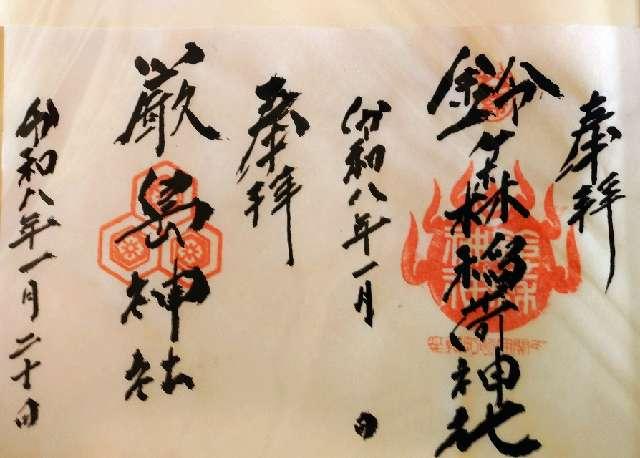 奉拝
鈴森稲荷神社
令和八年一月 日
奉拝
厳島神社
令和八年一月二十日